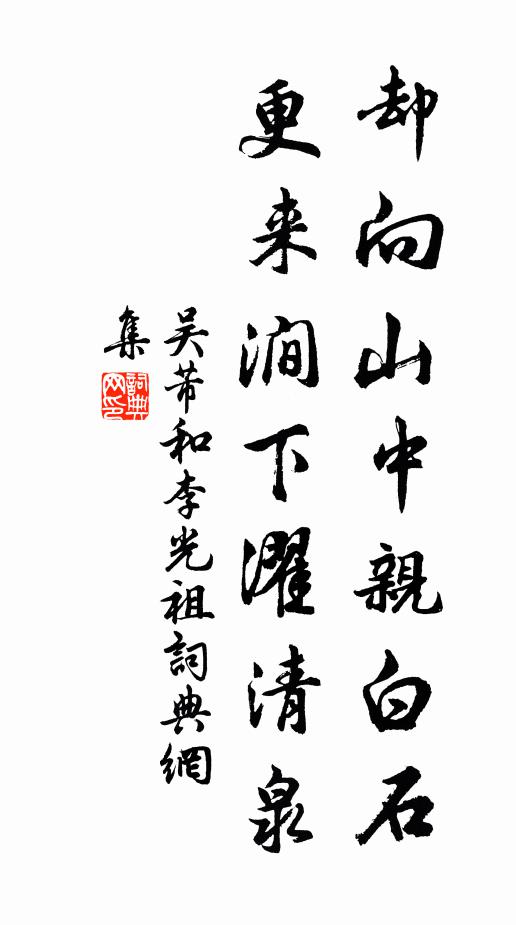 却向山中親白石
更来澗下濯清泉
吴芾和李光祖詞典網
集
詞典
网印